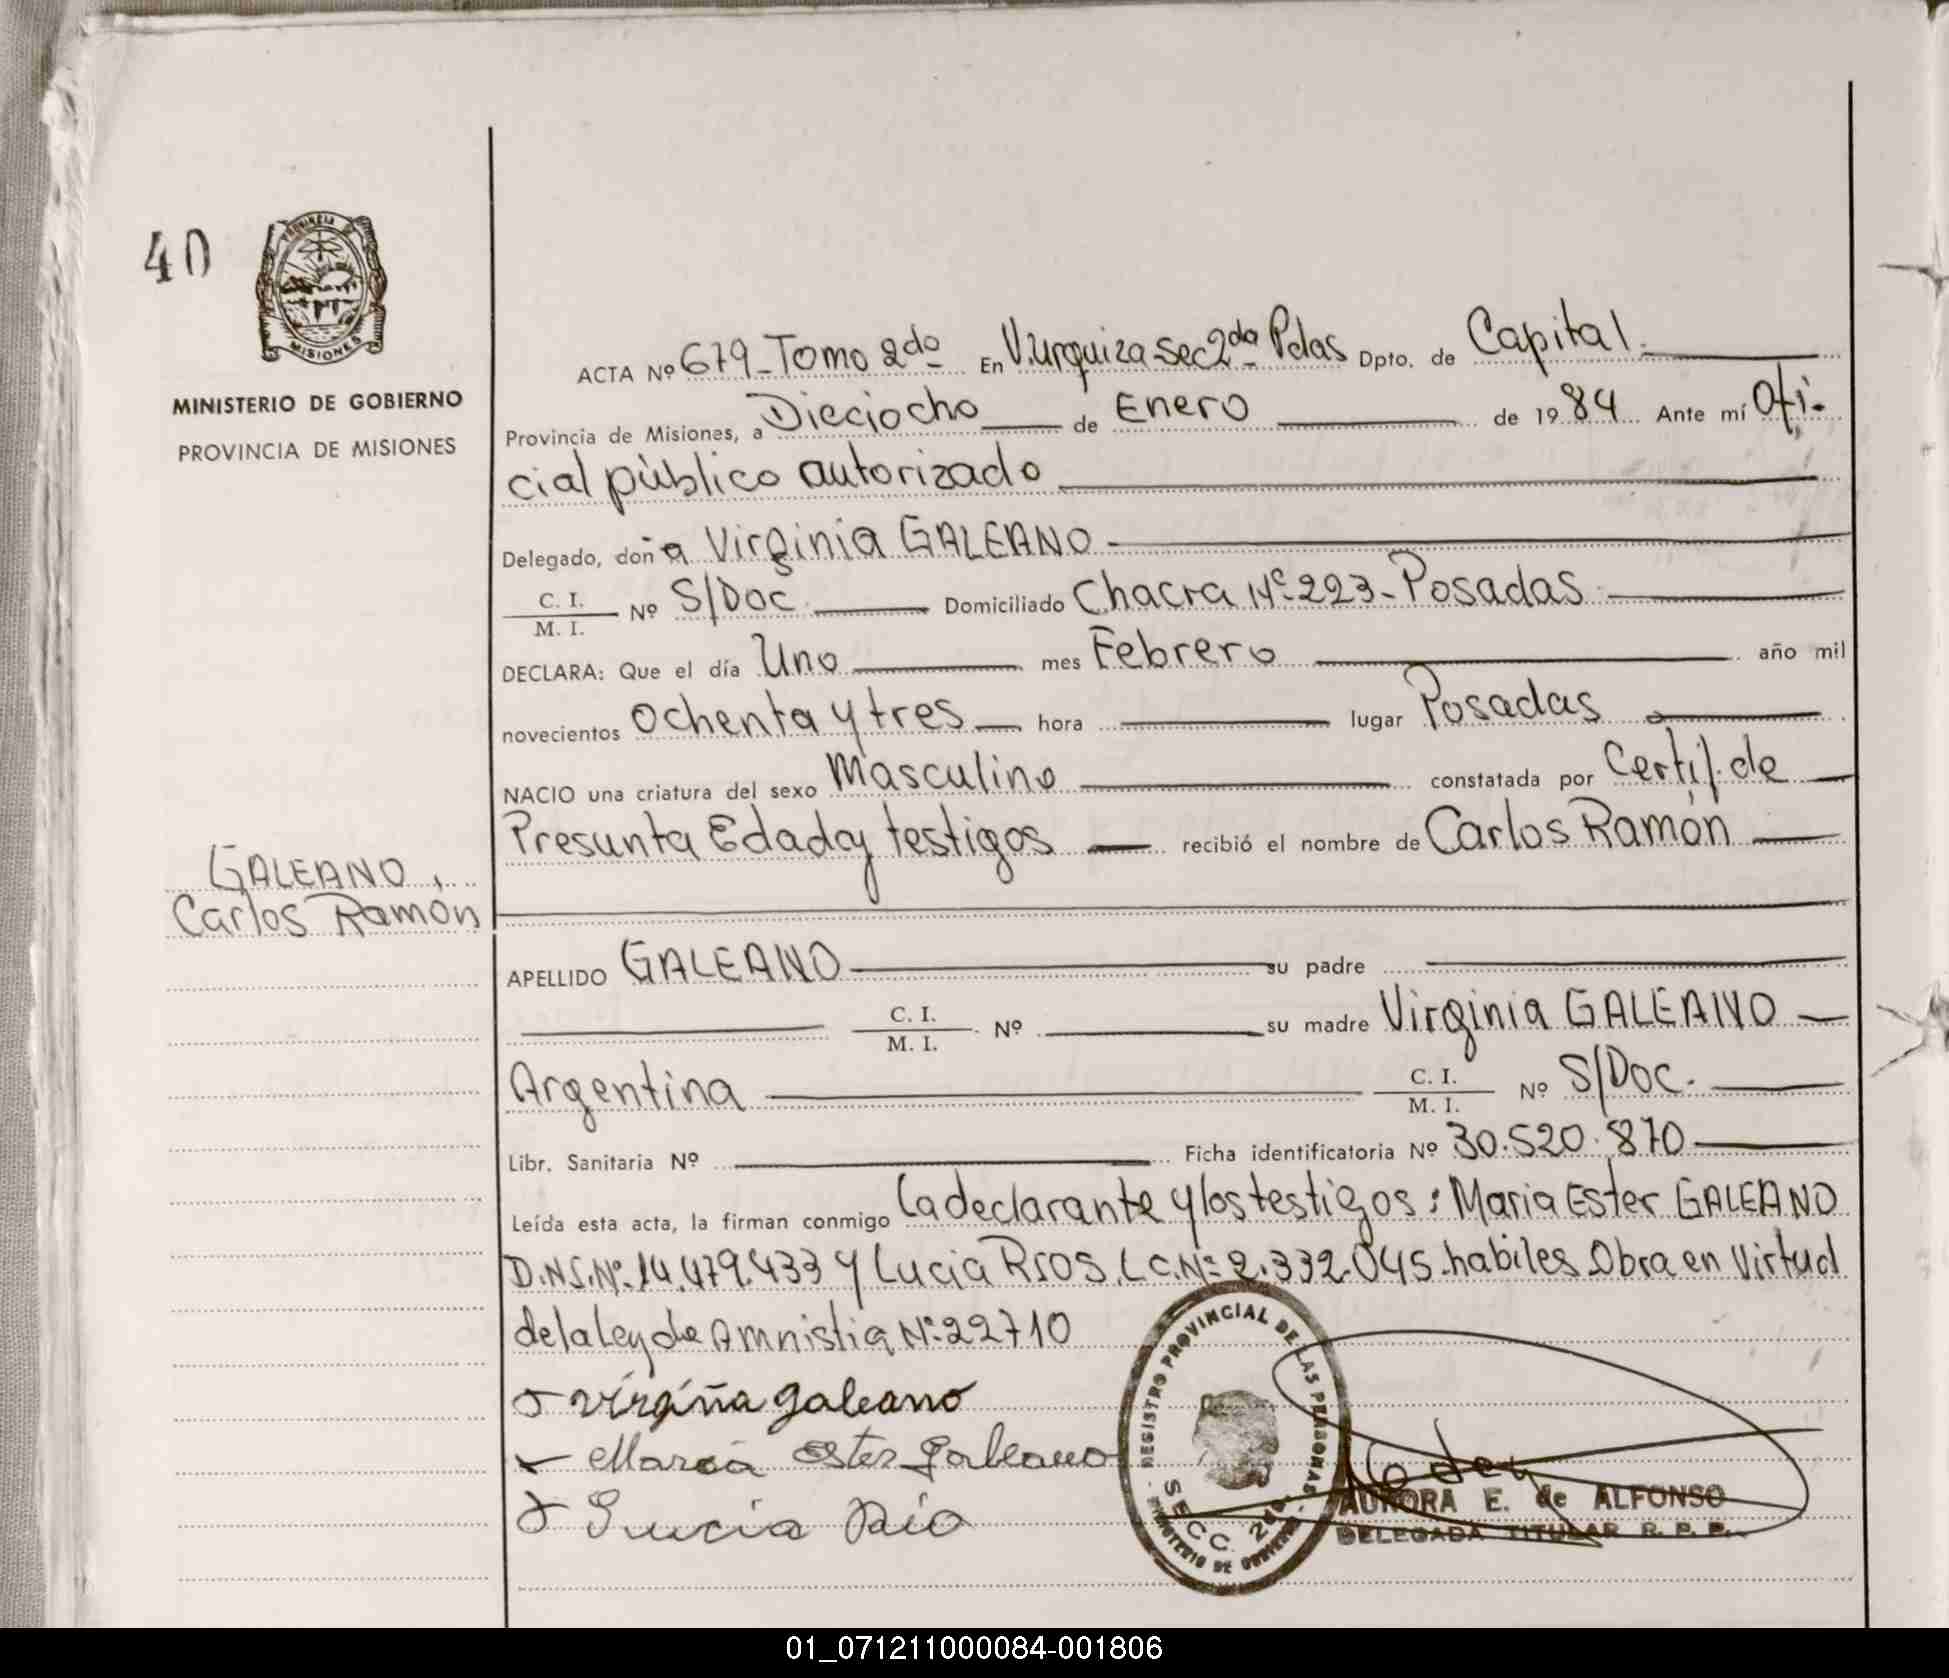 40
PROVINCIA DE
MISIONES
MINISTERIO DE GOBIERNO
PROVINCIA DE MISIONES
ACTA Nº 679_Tomo 2do En V.Urquiza Sec 2da Pdas Dpto. de Capital
Provincia de Misiones, a Dieciocho de Enero de 19 84 Ante mí Ofi-
cial público autorizado
Delegado, doña Virginia GALEANO
C. I.
M. I. Nº S/Doc. Domiciliado Chacra Nº 223-Posadas
DECLARA: Que el día Uno mes Febrero año mil
novecientos Ochenta y tres hora lugar Posadas
NACIO una criatura del sexo Masculino constatada por Certif. de
Presunta Edad y testigos recibió el nombre de Carlos Ramón
GALEANO,
Carlos Ramón
APELLIDO GALEANO su padre
C. I.
M. I. Nº su madre Virginia GALEANO
Argentina C. I.
M. I. Nº S/Doc.
Libr. Sanitaria Nº Ficha identificatoria Nº 30.520.870
Leída esta acta, la firman conmigo la declarante y los testigos: Maria Ester GALEANO
D.N.I.Nº 14.479.433 y Lucia RIOS, L C.Nº 2.332.045 habiles Obra en Virtud
de la ley de Amnistia Nº 22710
virgiña galeano
Maria Ester Galeano
Lucia Rio
REGISTRO PROVINCIAL DE LAS PERSONAS
SECC. 2da
MINISTERIO DE GOBIERNO
AURORA E. de ALFONSO
DELEGADA TITULAR R. P. P.
01_071211000084-001806